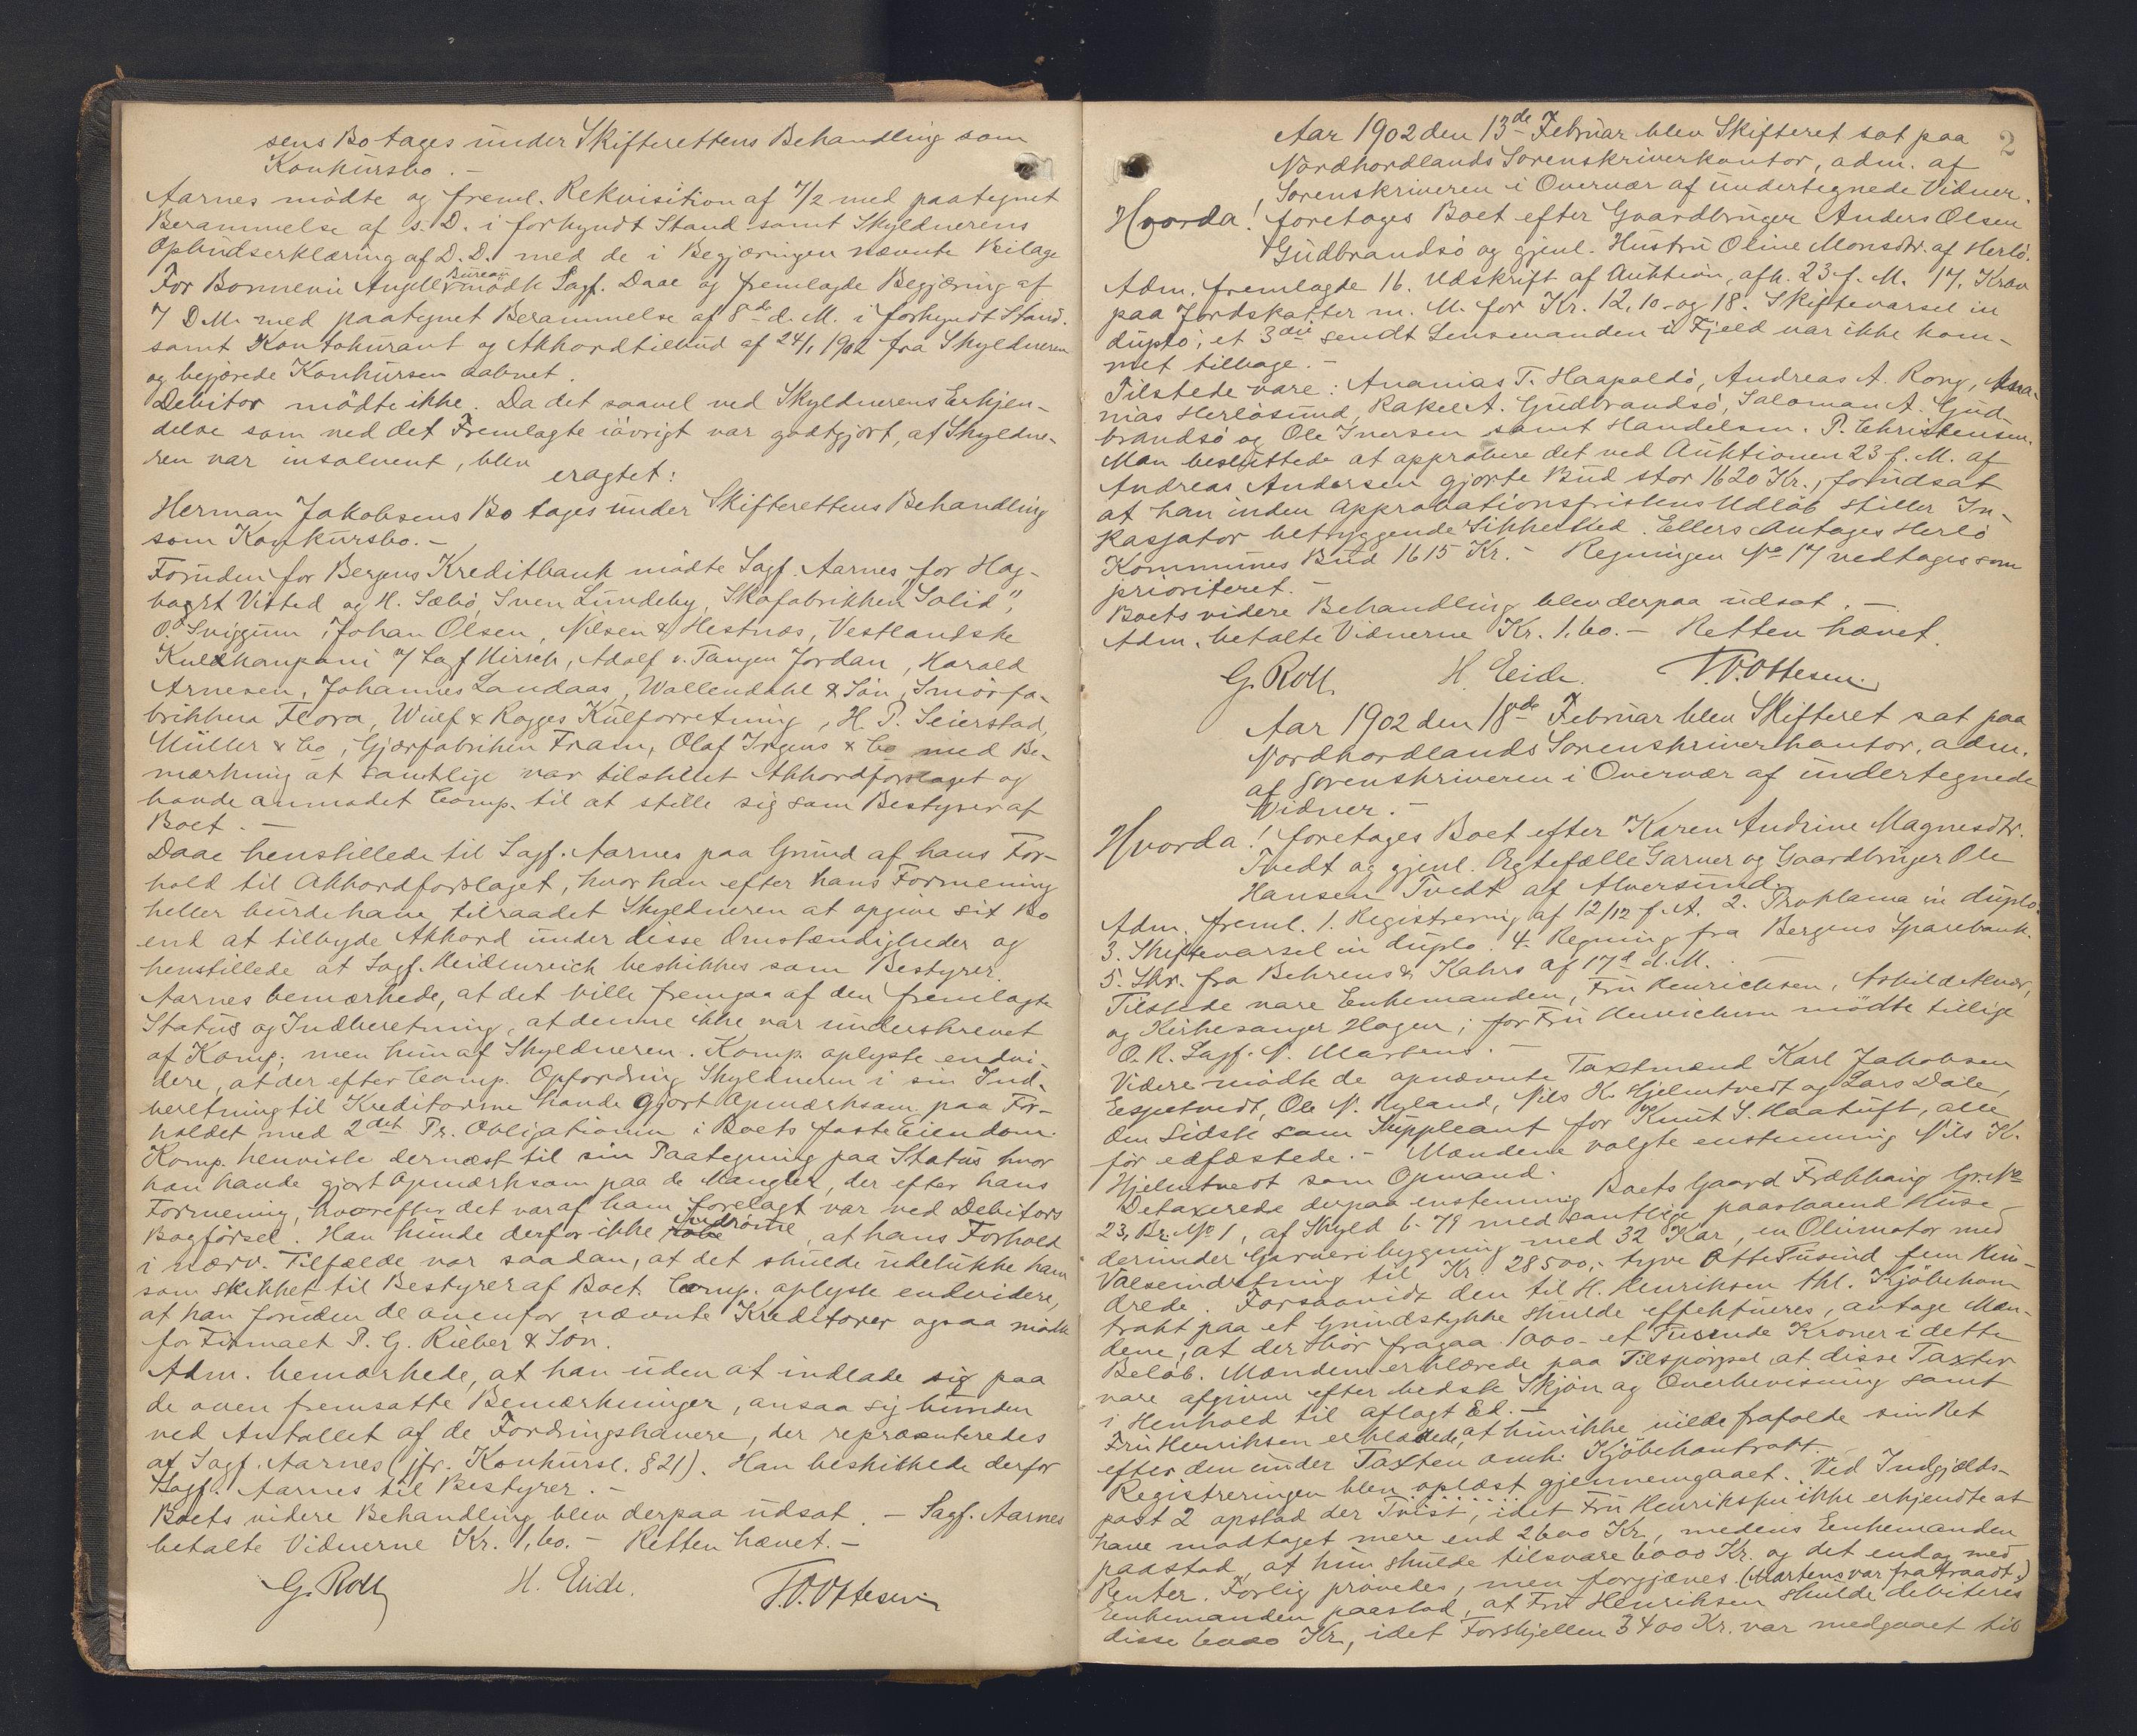 sens Bo tages under Skifterettens Behandling som
Konkursbo. -
Aarnes mödte og freml. Rekvisition af 7/2 med paategnet
Berammelse af s. D. i forkyndt Stand samt Skyldnerens
Opbudserklæring af D. D. med de i Begjæringen nævnte Beilage
For Bonnevie Angells Bureau mödte Sagf. Daae og fremlagde Begjæring af
7 D. M. med paategnet Berammelse af 8de d. M. i forkyndt Stand.
samt Kontokurant og Akkordtilbud af 24/1 1902 fra Skyldneren
og begjærede Konkursen aabnet.
Debitor mödte ikke. Da det saavel ved Skyldnerens Erkjen-
delse som ved det Fremlagte iövrigt var godtgjort, at Skyldne-
ren var insolvent, blev
eragtet:
Herman Jakobsens Bo tages under Skifterettens Behandling
som Konkursbo. -
Foruden for Bergens Kreditbank mödte Sagf. Aarnes for Hag-
bart Visted og H. Sæbö, Sven Lundeby, Skofabrikken "Solid",
O. Sviggum, Johan Olsen, Nilsen & Hestnæs, Vestlandske
Kulkompani v/ Sagf Hirsch, Adolf v. Tangen Jordan, Harald
Arnesen, Johannes Landaas, Wallendahl & Sön, Smörfa-
brikken Flora, Wulf & Rogges Kulforretning, H. P. Seierstad,
Müller & Co, Gjærfabriken Fram, Olaf Irgens & Co med Be-
mærkning at samtlige var tilstillet Akkordforslaget og
havde anmodet Comp. til at stille sig som Bestyrer af
Boet. -
Daae henstillede til Sagf. Aarnes paa Grund af hans For-
hold til Akkordforslaget, hvor han efter hans Formening
heller burde have tilraadet Skyldneren at opgive sit Bo
end at tilbyde Akkord under disse Omstændigheder og
henstillede at Sagf. Heidenreich beskikkes som Bestyrer.
Aarnes bemærkede, at det ville fremgaa af den fremlagte
Status og Indberetning, at denne ikke var underskrevet
af Komp; men kun af Skyldneren. Komp. oplyste endvi-
dere, at der efter Comp. Opfordring Skyldneren i sin Ind-
beretning til Kreditorerne havde gjort opmærksom paa For-
holdet med 2det Pr. Obligationen i Boets faste Eiendom.
Komp. henviste dernæst til sin Paategning paa Status hvor
han havde gjort opmærksom paa de Mangler, der efter hans
Formening, hvorefter det var af ham forelagt var ved Debitors
Bogförsel. Han kunde derfor ikke indrömme, at hans Forhold
i nærv. Tilfælde var saadan, at det skulde udelukke ham
som skikket til Bestyrer af Boet. Comp. oplyste endvidere,
at han foruden de ovenfor nævnte Kreditorer ogsaa mödte
for Firmaet P. G. Rieber & Sön.
Adm. bemærkede, at han uden at indlade sig paa
de oven fremsatte Bemærkninger, ansaa sig bunden
ved Antallet af de Fordringshavere, der repræsenteredes
af Sagf. Aarnes (jfr. Konkursl. § 21). Han beskikkede derfor
Sagf. Aarnes til Bestyrer. -
Boets videre Behandling blev derpaa udsat. - Sagf. Aarnes
betalte Vidnerne Kr. 1,60. - Retten hævet. -
G. Roll H. Eide. T. O. Ottesen
2
Aar 1902 den 13de Februar blev Skifteret sat paa
Nordhordlands Sorenskriverkontor, adm. af
Sorenskriveren i Overvær af undertegnede Vidner.
Hvorda! foretages Boet efter Gaardbruger Anders Olsen
Gudbrandsö og gjenl. Hustru Oline Monsdtr. af Herlö.
Adm. fremlagde 16. Udskrift af Auktion, afh. 23 f. M. 17. Krav
paa Jordskatter m. M. for Kr. 12,10 og 18. Skiftevarsel in
duplo; et 3die sendt Lensmanden i Fjeld var ikke kom-
met tilbage. -
Tilstede vare: Ananias T. Haapoldö, Andreas A. Rong, Ana-
nias Herlösund, Rakel A. Gudbrandsö, Saloman A. Gud
brandsö og Ole Iversen samt Handelsm. P. Christensen.
Man besluttede at approbere det ved Auktionen 23 f. M. af
Andreas Andersen gjorte Bud stor 1620 Kr., forudsat
at han inden Approbationsfristens Udlöb stiller In-
kassator betryggende Sikkerhed. Ellers antages Herlö
Kommunes Bud 1615 Kr. - Regningen No 17 vedtages som
prioriteret. -
Boets videre Behandling blev derpaa udsat. -
Adm. betalte Vidnerne Kr. 1,60. - Retten hævet.
G. Roll. H. Eide. T. O. Ottesen.
Aar 1902 den 18de Februar blev Skifteret sat paa
Nordhordlands Sorenskriverkontor, adm.
af Sorenskriveren i Overvær af undertegnede
Vidner. -
Hvorda! foretages Boet efter Karen Andrine Magnesdtr.
Tvedt og gjenl. Egtefælle Garver og Gaardbruger Ole
Hansen Tvedt af Alversund.
Adm. freml. 1. Registrering af 12/12 f. A. 2. Proklama in duplo.
3. Skiftevarsel in duplo. 4. Regning fra Bergens Sparebank.
5. Skr. fra Behrens & Kahrs af 17d d. M. -
Tilstede vare Enkemanden, Fru Henrichsen, Askild Alvær,
og Kirkesanger Hagen; for Fru Henrichsen mödte tillige
O. R. Sagf. N. Martens. -
Videre mödte de opnævnte Taxtmænd Karl Jakobsen
Espetvedt, Ole N. Ryland, Nils K. Hjelmtvedt og Lars Dale,
den Sidste som Suppleant for Knut S. Haatuft, alle
för edfæstede. - Mændene valgte enstemmig Nils K.
Hjelmtvedt som Opmand.
Detaxerede derpaa enstemmig Boets Gaard Frækhaug Gr. No
23, Br. No 1, af Skyld 6.79 med samtlige paastaaende Huse
derunder Garveribygning med 32 Kar, en Oliemotor med
Valseindretning til Kr. 28500,- tyve Otte Tusind fem Hun-
drede. Forsaavidt den til H. Henriksen thl. Kjöbekon-
trakt paa et Grundstykke skulde effektueres, antage Mæn-
dene, at der bör fragaa 1000- et Tusinde Kroner i dette
Belöb. Mændene erklærede paa Tilspörgsel, at disse Taxter
vare afgivne efter bedste Skjön og Overbevisning samt
i Henhold til aflagt Ed. -
Fru Henriksen erklærede, at hun ikke vilde frafalde sin Ret
efter den under Taxten omh. Kjöbekontrakt.
Registreringen blev oplæst gjennemgaaet. Ved Indgjælds-
post 2 opstod der Tvist, idet Fru Henriksen ikke erkjendte at
have modtaget mere end 2600 Kr, medens Enkemanden
paastod, at hun skulde tilsvare 6000 Kr. og det endog med
Renter. Forlig prövedes, men forgjæves. (Martens var fratraadt.)
Enkemanden paastod, at Fru Henriksen skulde debiteres
disse 6000 Kr, idet Forskjellen 3400 Kr. var medgaaet til